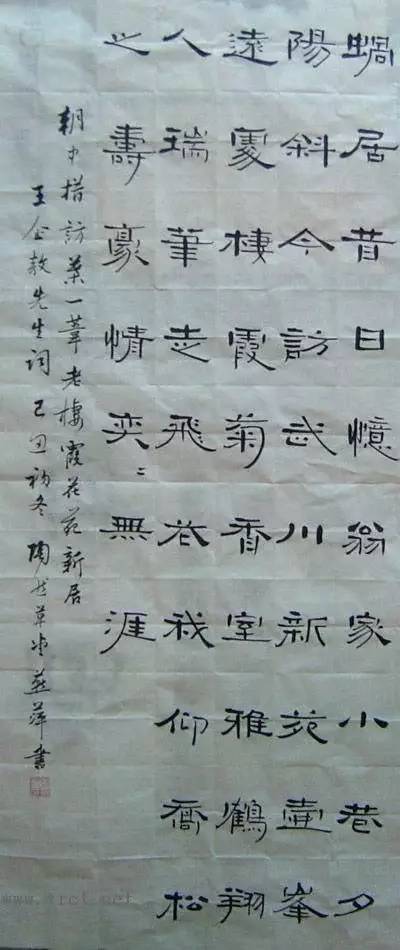 蝸居昔日憶翁家小巷夕
陽斜今訪武川新苑壺峯
遠處棲霞菊香室雅鶴翔
人瑞筆走飛花我仰喬松
之壽豪情奕〻無涯
朝中措訪葉一葦老棲霞花苑新居
王企敖先生詞己丑初冬陶然草燕萍書